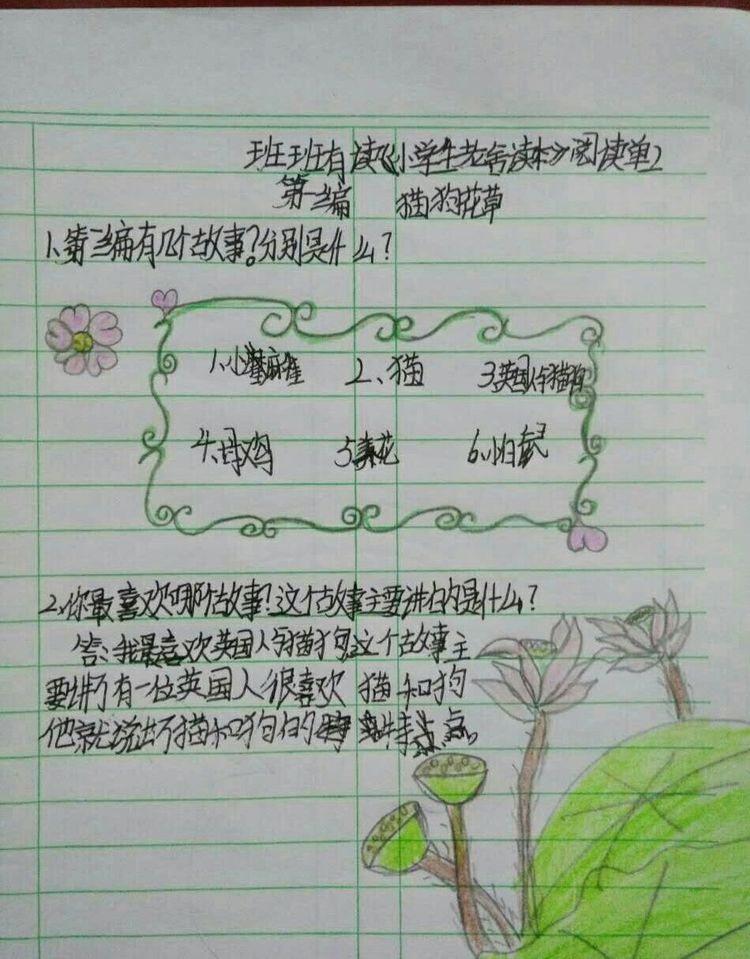 班班有读《小学生老舍读本》阅读单2
第三编 猫狗花草
1、第三编有几个故事?分别是什么?
1、小麻雀 2、猫 3、英国人与猫狗
4、母鸡 5、养花 6、小白鼠
2、你最喜欢哪个故事?这个故事主要讲的是什么?
答:我最喜欢英国人与猫狗,这个故事主
要讲了有一位英国人很喜欢 猫和狗
他就说出了猫和狗的特点。